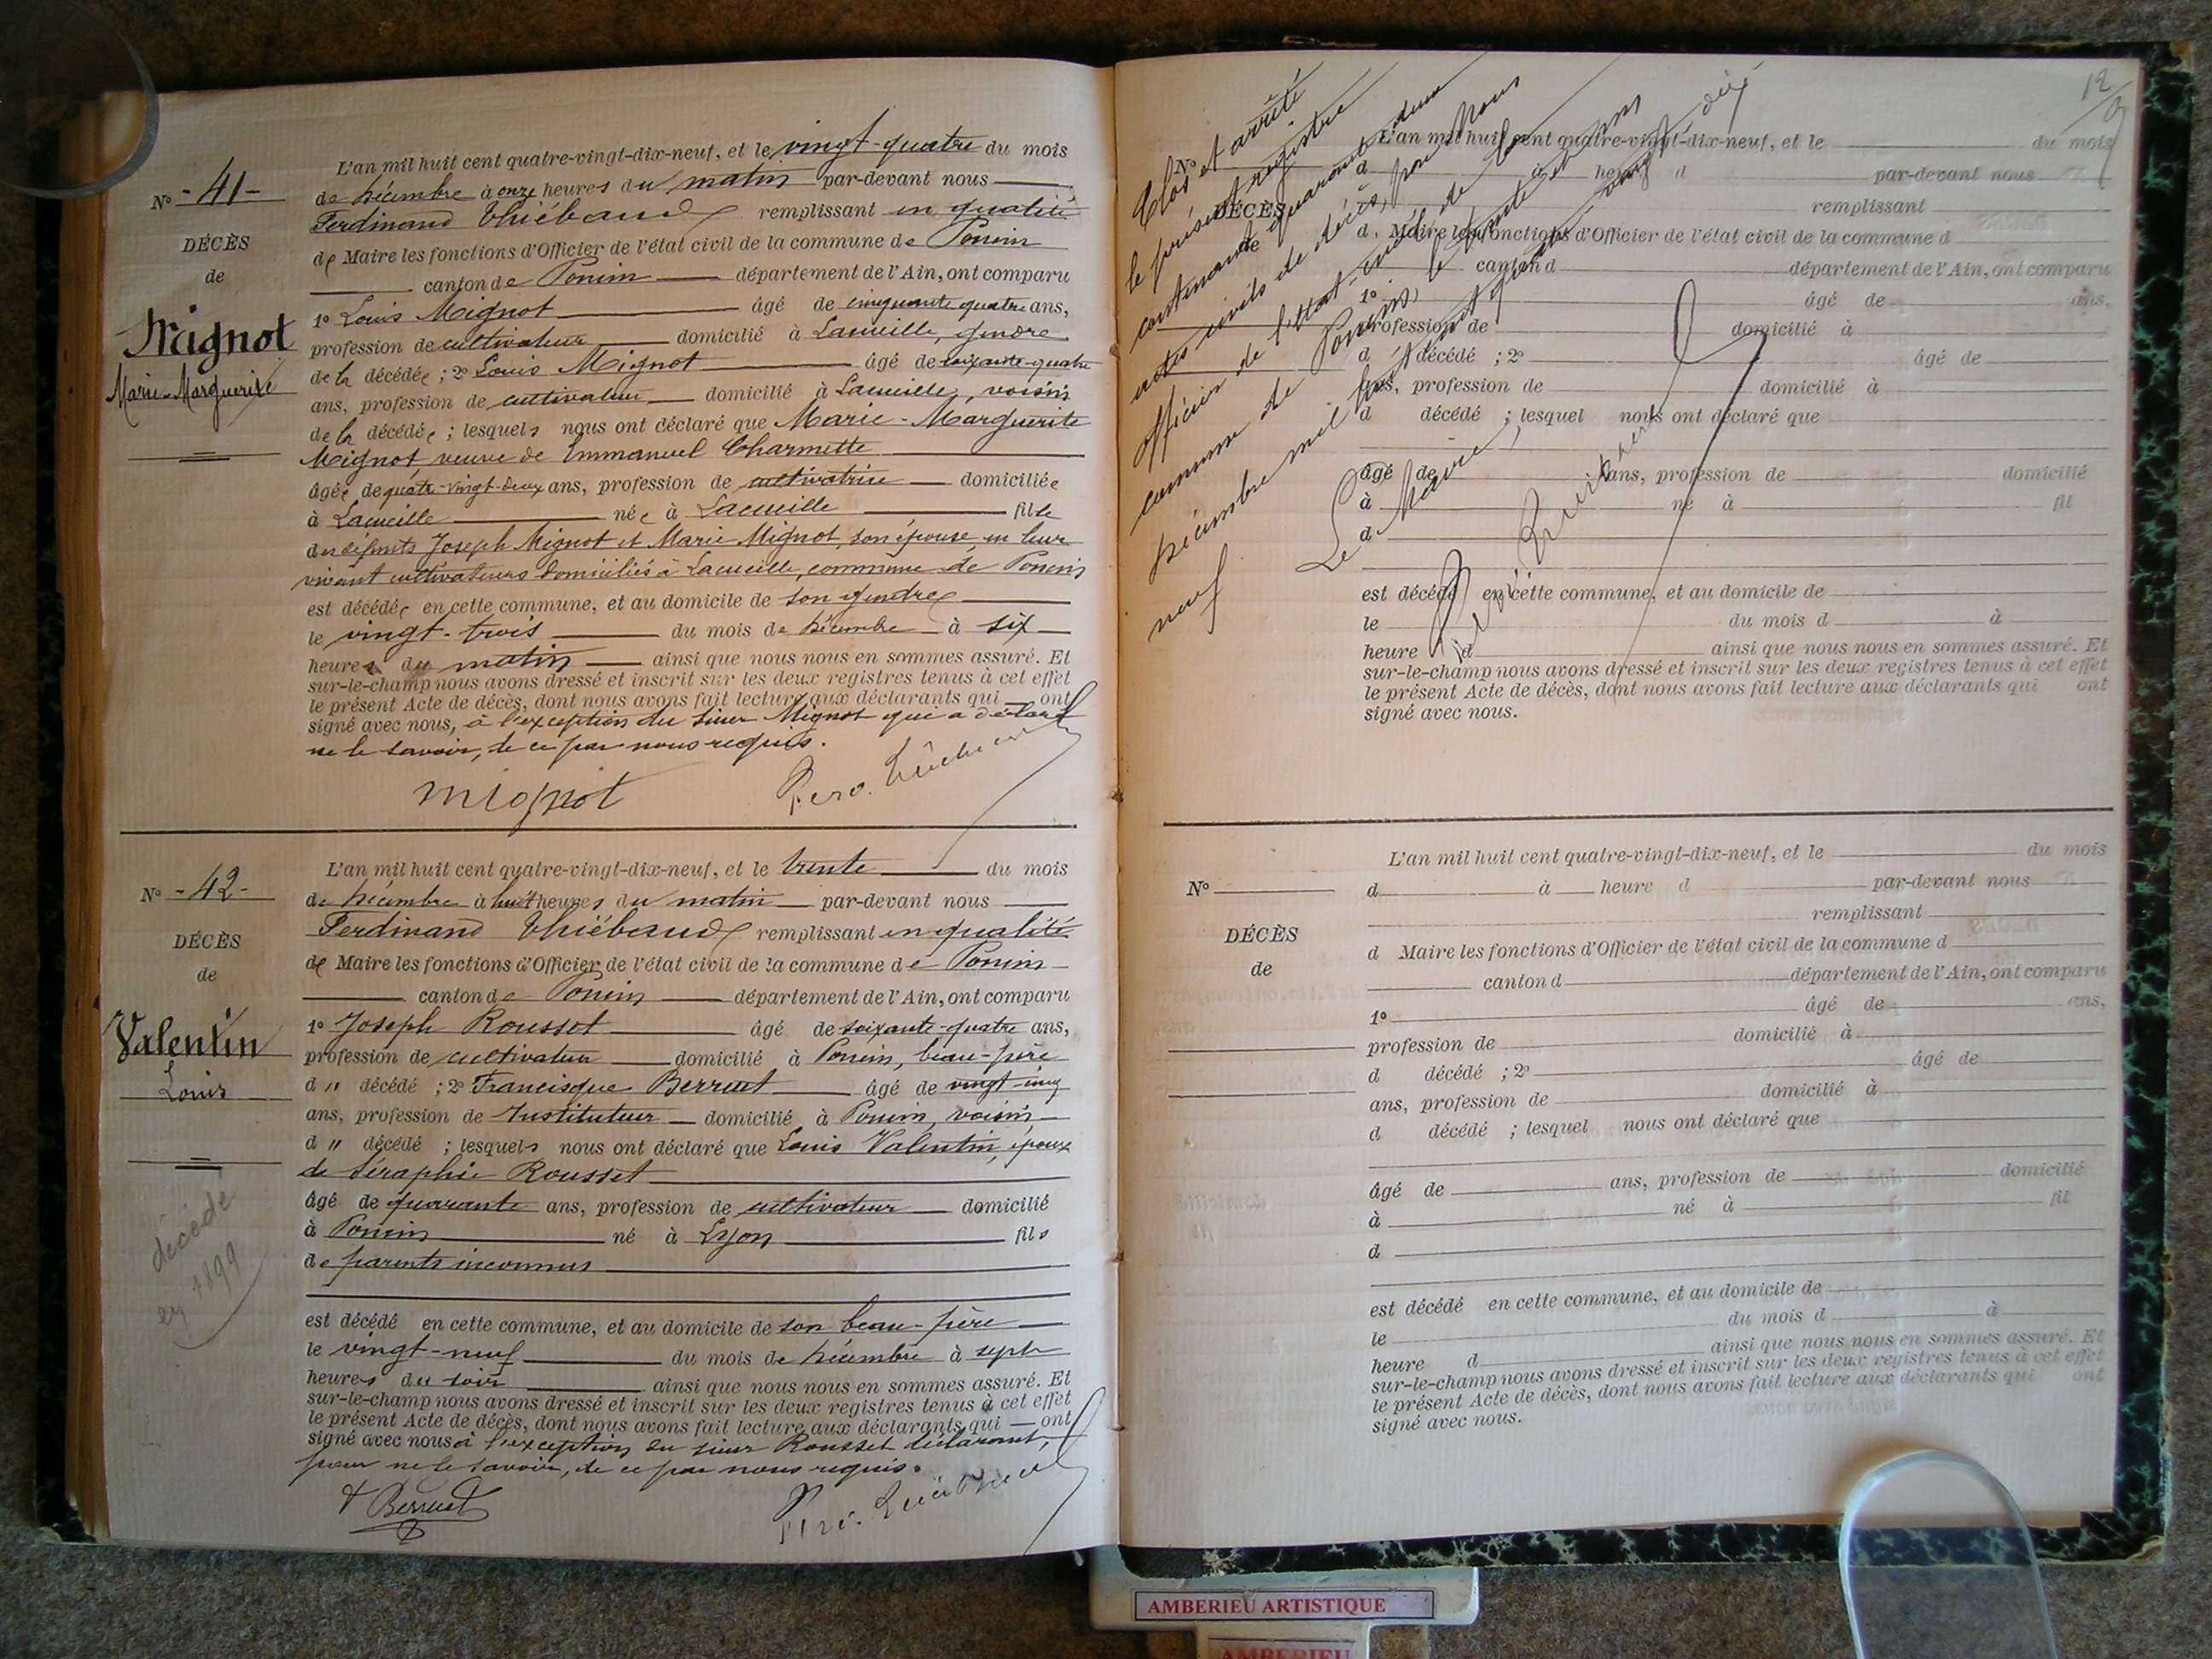 L'an mil huit cent quatre-vingt-dix-neuf, et le vingt-quatre du mois
N° - 41 -
de Décembre à onze heures du matin par-devant nous
Ferdinand Thiébaud remplissant en qualité
DÉCÈS
de Maire les fonctions d'Officier de l'état civil de la commune de Poncin
de
canton de Poncin département de l'Ain, ont comparu
1° Louis Mignot âgé de cinquante quatre ans,
Mignot
profession de cultivateur domicilié à Lacueille, gendre
de la décédée ; 2° Louis Mignot âgé de soixante-quatre
Marie-Marguerite
ans, profession de cultivateur domicilié à Lacueille, voisin
de la décédée ; lesquels nous ont déclaré que Marie-Marguerite
Mignot veuve de Emmanuel Charmette
âgée de quatre-vingt-deux ans, profession de cultivatrice domiciliée
à Lacueille née à Lacueille fille
des défunts Joseph Mignot et Marie Mignot, son épouse, en leur
vivant cultivateurs domiciliés à Lacueille, commune de Poncin
est décédée en cette commune, et au domicile de son gendre
le vingt-trois du mois de Décembre à six
heures du matin ainsi que nous nous en sommes assuré. Et
sur-le-champ nous avons dressé et inscrit sur les deux registres tenus à cet effet
le présent Acte de décès, dont nous avons fait lecture aux déclarants qui ont
signé avec nous, à l'exception du sieur Mignot qui a déclaré
ne le savoir, de ce par nous requis.
Mignot
L'an mil huit cent quatre-vingt-dix-neuf, et le trente du mois
N° - 42 -
de Décembre à huit heures du matin par-devant nous
Ferdinand Thiébaud remplissant en qualité
DÉCÈS
de Maire les fonctions d'Officier de l'état civil de la commune de Poncin
de
canton de Poncin département de l'Ain, ont comparu
1° Joseph Rousset âgé de soixante-quatre ans,
Valentin
profession de cultivateur domicilié à Poncin, beau-père
Louis
d " décédé ; 2° Francisque Berruet âgé de vingt-cinq
ans, profession de Instituteur domicilié à Poncin, voisin
d " décédé ; lesquels nous ont déclaré que Louis Valentin, époux
de Séraphie Rousset
âgé de quarante ans, profession de cultivateur domicilié
à Poncin né à Lyon fils
de parents inconnus
décédé
en 1899
est décédé en cette commune, et au domicile de son beau-père
le vingt-neuf du mois de Décembre à sept
heures du soir ainsi que nous nous en sommes assuré. Et
sur-le-champ nous avons dressé et inscrit sur les deux registres tenus à cet effet
le présent Acte de décès, dont nous avons fait lecture aux déclarants qui ont
signé avec nous à l'exception du sieur Rousset déclarant,
pour ne le savoir, de ce par nous requis.
Berruet
12
Clos et arrêté
le présent registre
contenant quarante deux
actes civils de décès, par Nous
officier de l'état civil de la
commune de Poncin, le trente et un
Décembre mil huit cent quatre vingt dix
neuf
Le Maire,
L'an mil huit cent quatre-vingt-dix-neuf, et le du mois
N°
d à heure d par-devant nous
remplissant
DÉCÈS
de
d Maire les fonctions d'Officier de l'état civil de la commune d
canton d département de l'Ain, ont comparu
1° âgé de ans,
profession de domicilié à
d décédé ; 2° âgé de
ans, profession de domicilié à
d décédé ; lesquel nous ont déclaré que
âgé de ans, profession de domicilié
à né à fil
d
est décédé en cette commune, et au domicile de
le du mois d à
heure d ainsi que nous nous en sommes assuré. Et
sur-le-champ nous avons dressé et inscrit sur les deux registres tenus à cet effet
le présent Acte de décès, dont nous avons fait lecture aux déclarants qui ont
signé avec nous.
L'an mil huit cent quatre-vingt-dix-neuf, et le du mois
N°
d à heure d par-devant nous
remplissant
DÉCÈS
d Maire les fonctions d'Officier de l'état civil de la commune d
de
canton d département de l'Ain, ont comparu
1° âgé de ans,
profession de domicilié à
d décédé ; 2° âgé de
ans, profession de domicilié à
d décédé ; lesquel nous ont déclaré que
âgé de ans, profession de domicilié
à né à fil
d
est décédé en cette commune, et au domicile de
le du mois d à
heure d ainsi que nous nous en sommes assuré. Et
sur-le-champ nous avons dressé et inscrit sur les deux registres tenus à cet effet
le présent Acte de décès, dont nous avons fait lecture aux déclarants qui ont
signé avec nous.
AMBERIEU ARTISTIQUE
AMBERIEU